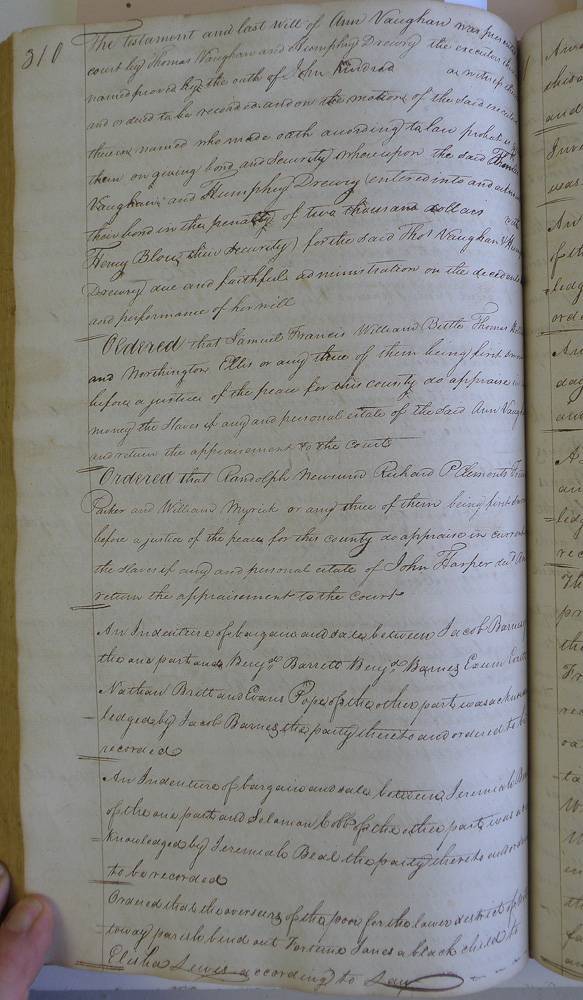 310
The testament and last will of Ann Vaughan was
court by Thomas Vaughan and Humphry Drewry the executors
named proved by the oath of John Kindred a witness
and ordered to be recorded and on the motion of the said
therein named who made oath according to law probat is
them on giving bond and Security whereupon the said
Vaughan and Humphry Drewry entered into and
their bond in the penalty of two thousand dollars
Henry Blow their Security) for the said Thos Vaughan &
Drewry due and faithful administration on the decedents
and performance of her will
Ordered that Samuel Francis William Bettle Thomas
and Northington Ellis or any three of them being first
before a justice of the peace for this county do appraise
money the Slaves if any and personal estate of the said Ann
and return the appraisement to the Court
Ordered that Randolph Newsum Richard P Clements
Parker and William Myrick or any three of them being first
before a justice of the peace for this county do appraise in
the slaves if any and personal estate of John Harper decd
return the appraisement to the Court
An Indenture of bargain and sale between Jacob Barnes
the one part and Benjn Barrett Benjn Barnes Exum
Nathan Britt and Evans Pope of the other part was
ledged by Jacob Barnes the party thereto and ordered to be
recorded
An Indenture of bargain and sale between Jeremiah
of the one part and Solomon Cobb of the other part was
knowledged by Jeremiah Beal the party thereto and
to be recorded
Ordered that the overseers of the poor for the lower district of
toway parish bind out Fortune Janes a black child to
Elisha Lewis according to Law